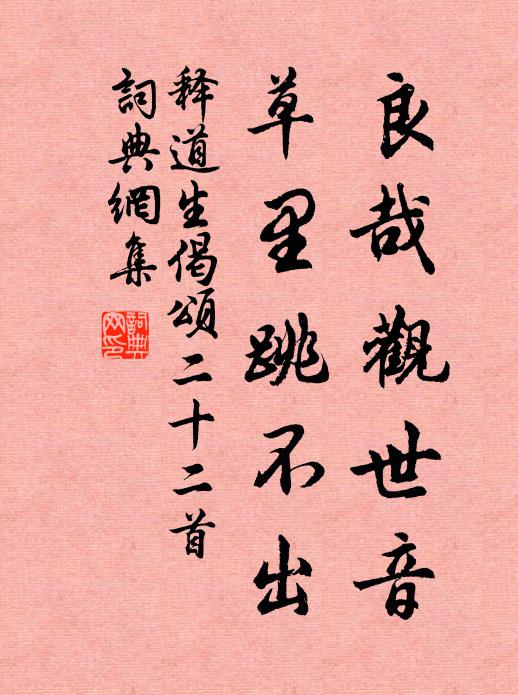 良哉觀世音
草里跳不出
释道生偈頌二十二首
詞典網集
詞典网印